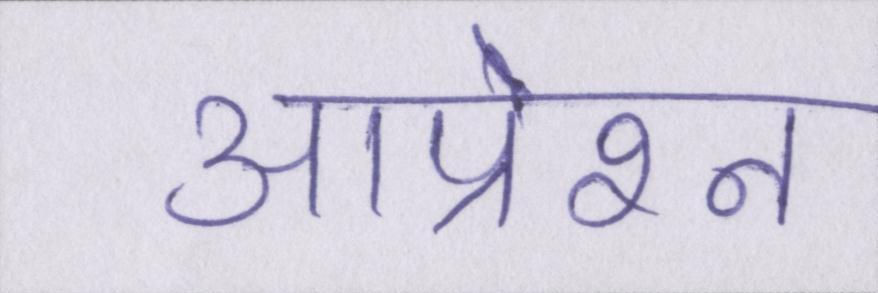 आप्रेश्न